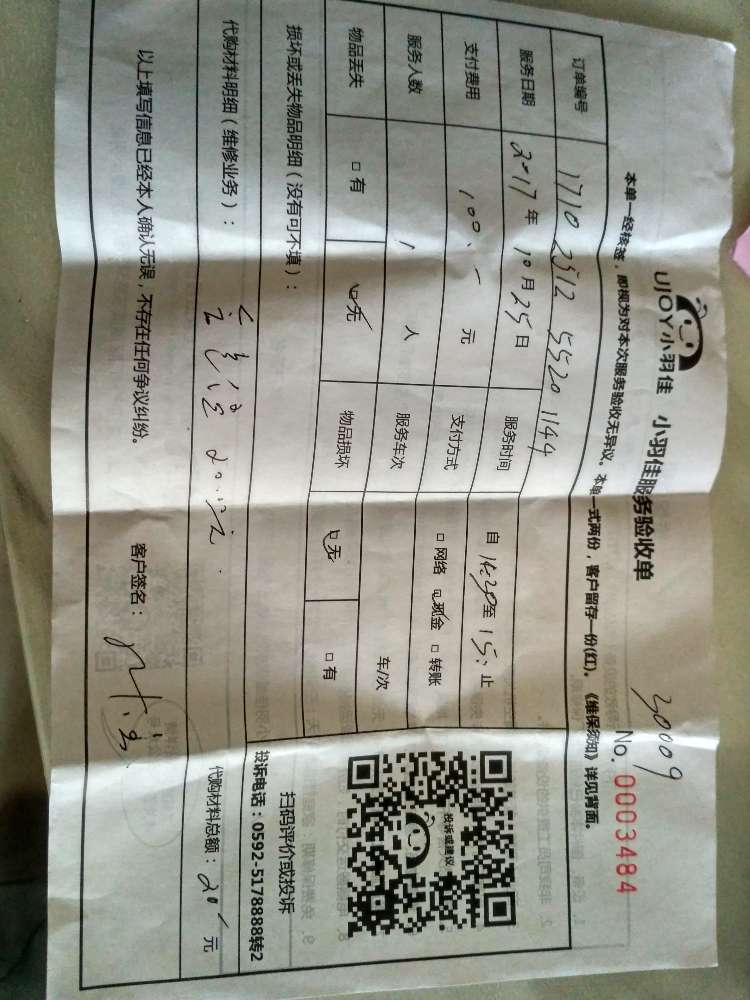 UJOY小羽佳 小羽佳服务验收单
30009
No. 0003484
本单一经核签，即视为对本次服务验收无异议。本单一式两份，客户留存一份(红)。《维保须知》详见背面。
订单编号 1710 2512 5520 1144
服务日期 2017年 10月25日 服务时间 自 14:30至 15: 止
支付费用 100.- 元 支付方式 □ 网络 ☑ 现金 □ 转账
服务人数 1 人 服务车次 车/次
物品丢失 □ 有 ☑无 物品损坏 ☑无 □ 有
损坏或丢失物品明细（没有可不填）：
投诉或建议
扫码评价或投诉
投诉电话：0592-5178888转2
代购材料明细（维修业务）：
代购材料总额：20 元
以上填写信息已经本人确认无误，不存在任何争议纠纷。 客户签名：